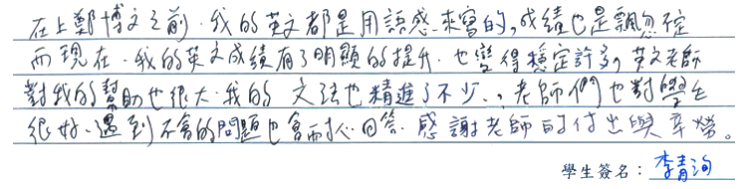 在上鄭博文之前,我的英文都是用語感來寫的,成績也是飄忽不定
而現在,我的英文成績有了明顯的提升,也變得穩定許多,英文老師
對我的幫助也很大,我的文法也精進了不少,老師們也對學生
很好,遇到不會的問題也會耐心回答,感謝老師的付出與辛勞。
學生簽名:李青洵